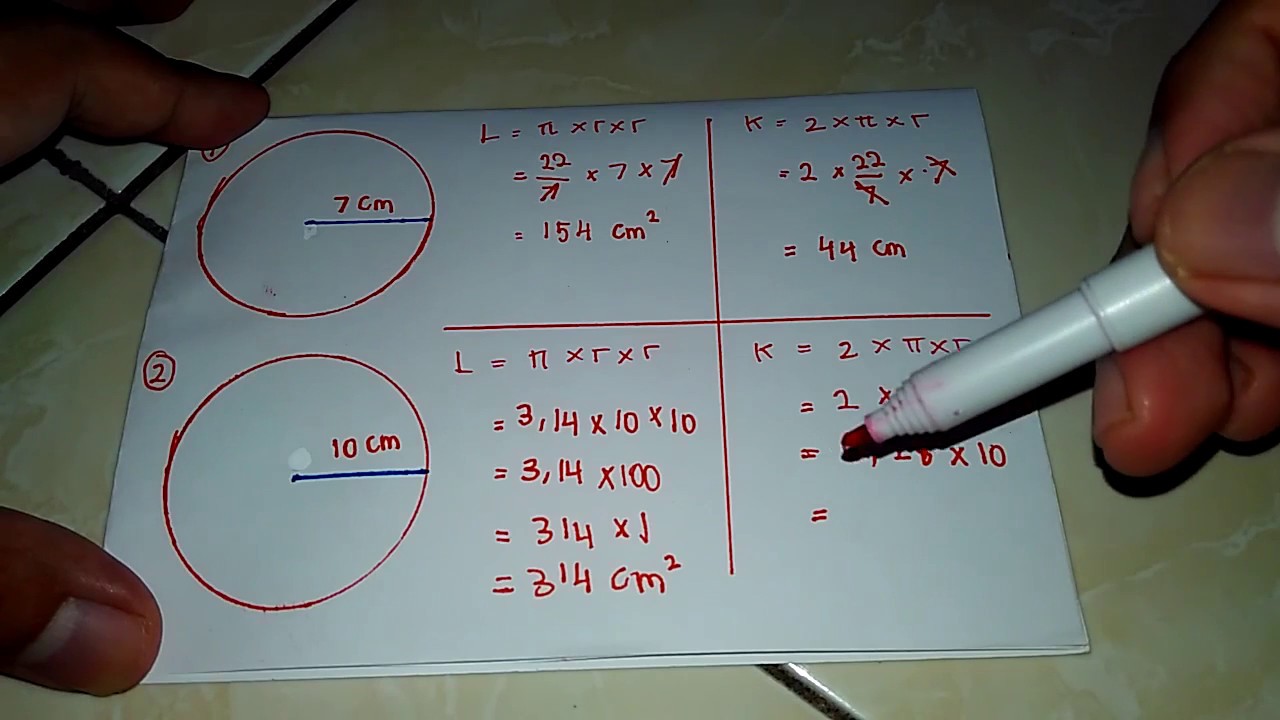 7 cm
L = π × r × r
= 22/7 × 7 × 7
= 154 cm²
K = 2 × π × r
= 2 × 22/7 × 7
= 44 cm
②
10 cm
L = π × r × r
= 3,14 × 10 × 10
= 3,14 × 100
= 314 × 1
= 314 cm²
K = 2 × π × r
= 2 ×
= ,28 × 10
=